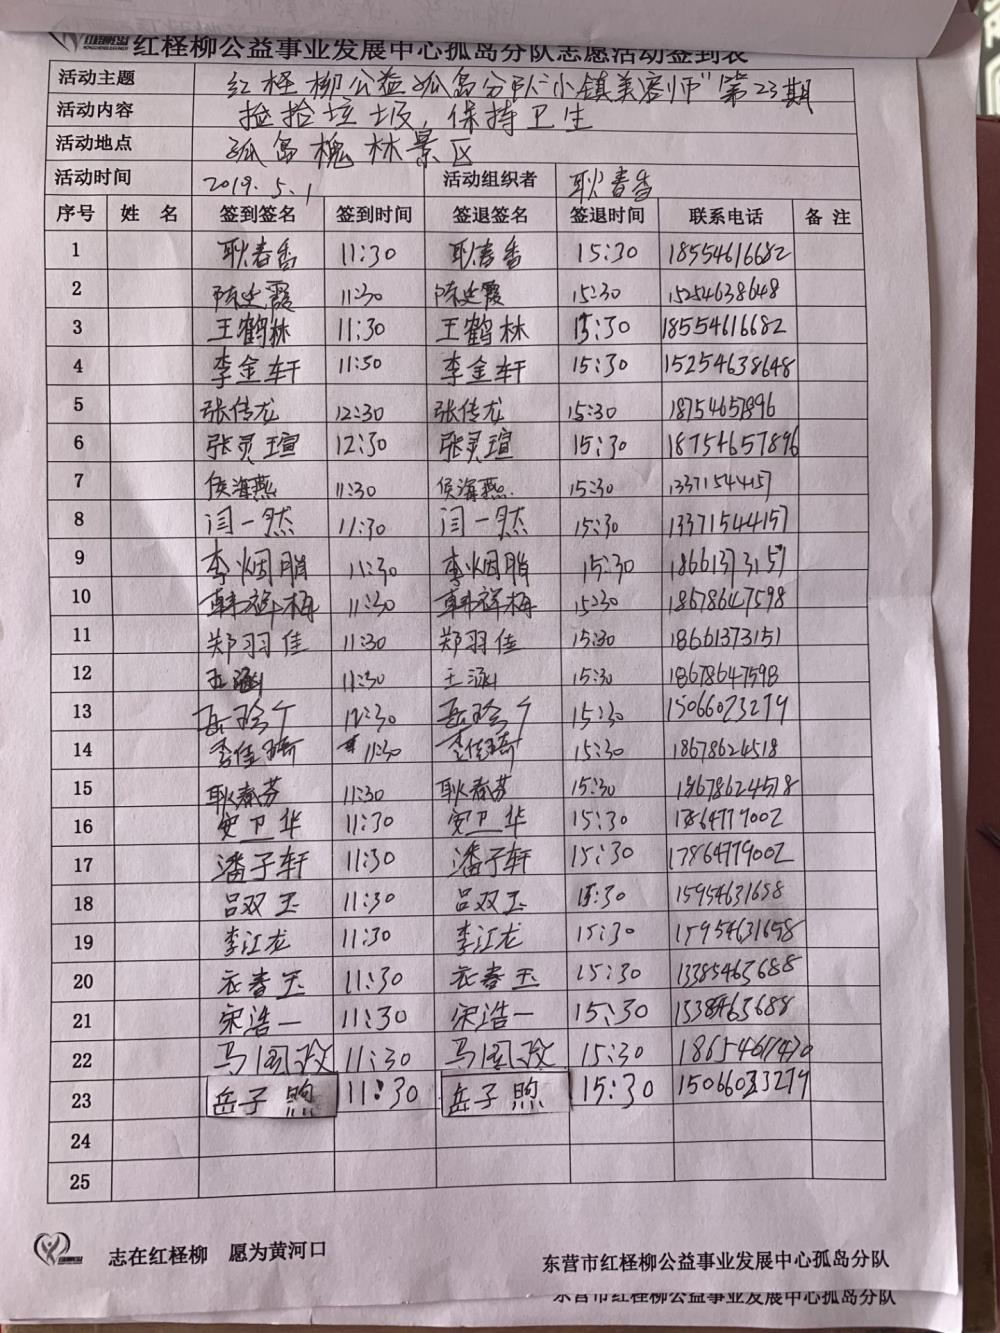 红柽柳公益事业发展中心孤岛分队志愿活动签到表
活动主题 红柽柳公益孤岛分队"小镇美容师"第23期
活动内容 捡拾垃圾，保持卫生
活动地点 孤岛槐林景区
活动时间 2019.5.1 活动组织者 耿春香
序号 姓 名 签到签名 签到时间 签退签名 签退时间 联系电话 备 注
1 耿春香 11:30 耿春香 15:30 18554616682
2 陈史霞 11:30 陈史霞 15:30 15254638648
3 王鹤林 11:30 王鹤林 15:30 18554616682
4 李金轩 11:30 李金轩 15:30 15254638648
5 张传龙 12:30 张传龙 15:30 18754657896
6 张灵瑄 12:30 张灵瑄 15:30 18754657896
7 侯海燕 11:30 侯海燕 15:30 13371544157
8 闫一然 11:30 闫一然 15:30 13371544157
9 李烟脂 11:30 李烟脂 15:30 18661373151
10 韩祥梅 11:30 韩祥梅 15:30 18678647598
11 郑羽佳 11:30 郑羽佳 15:30 18661373151
12 王涵 11:30 王涵 15:30 18678647598
13 15:30 15066023279
14 李佳琦 11:30 李佳琦 15:30 18678624518
15 耿春芬 11:30 耿春芬 15:30 18678624518
16 安卫华 11:30 安卫华 15:30 17864779002
17 潘子轩 11:30 潘子轩 15:30 17864779002
18 吕双玉 11:30 吕双玉 15:30 15954631658
19 李江龙 11:30 李江龙 15:30 15954631658
20 衣春玉 11:30 衣春玉 15:30 13385463688
21 宋浩一 11:30 宋浩一 15:30 13385463688
22 马国政 11:30 马国政 15:30 18654617430
23 岳子煦 11:30 岳子煦 15:30 15066023279
24
25
志在红柽柳 愿为黄河口
东营市红柽柳公益事业发展中心孤岛分队
东营市红柽柳公益事业发展中心孤岛分队